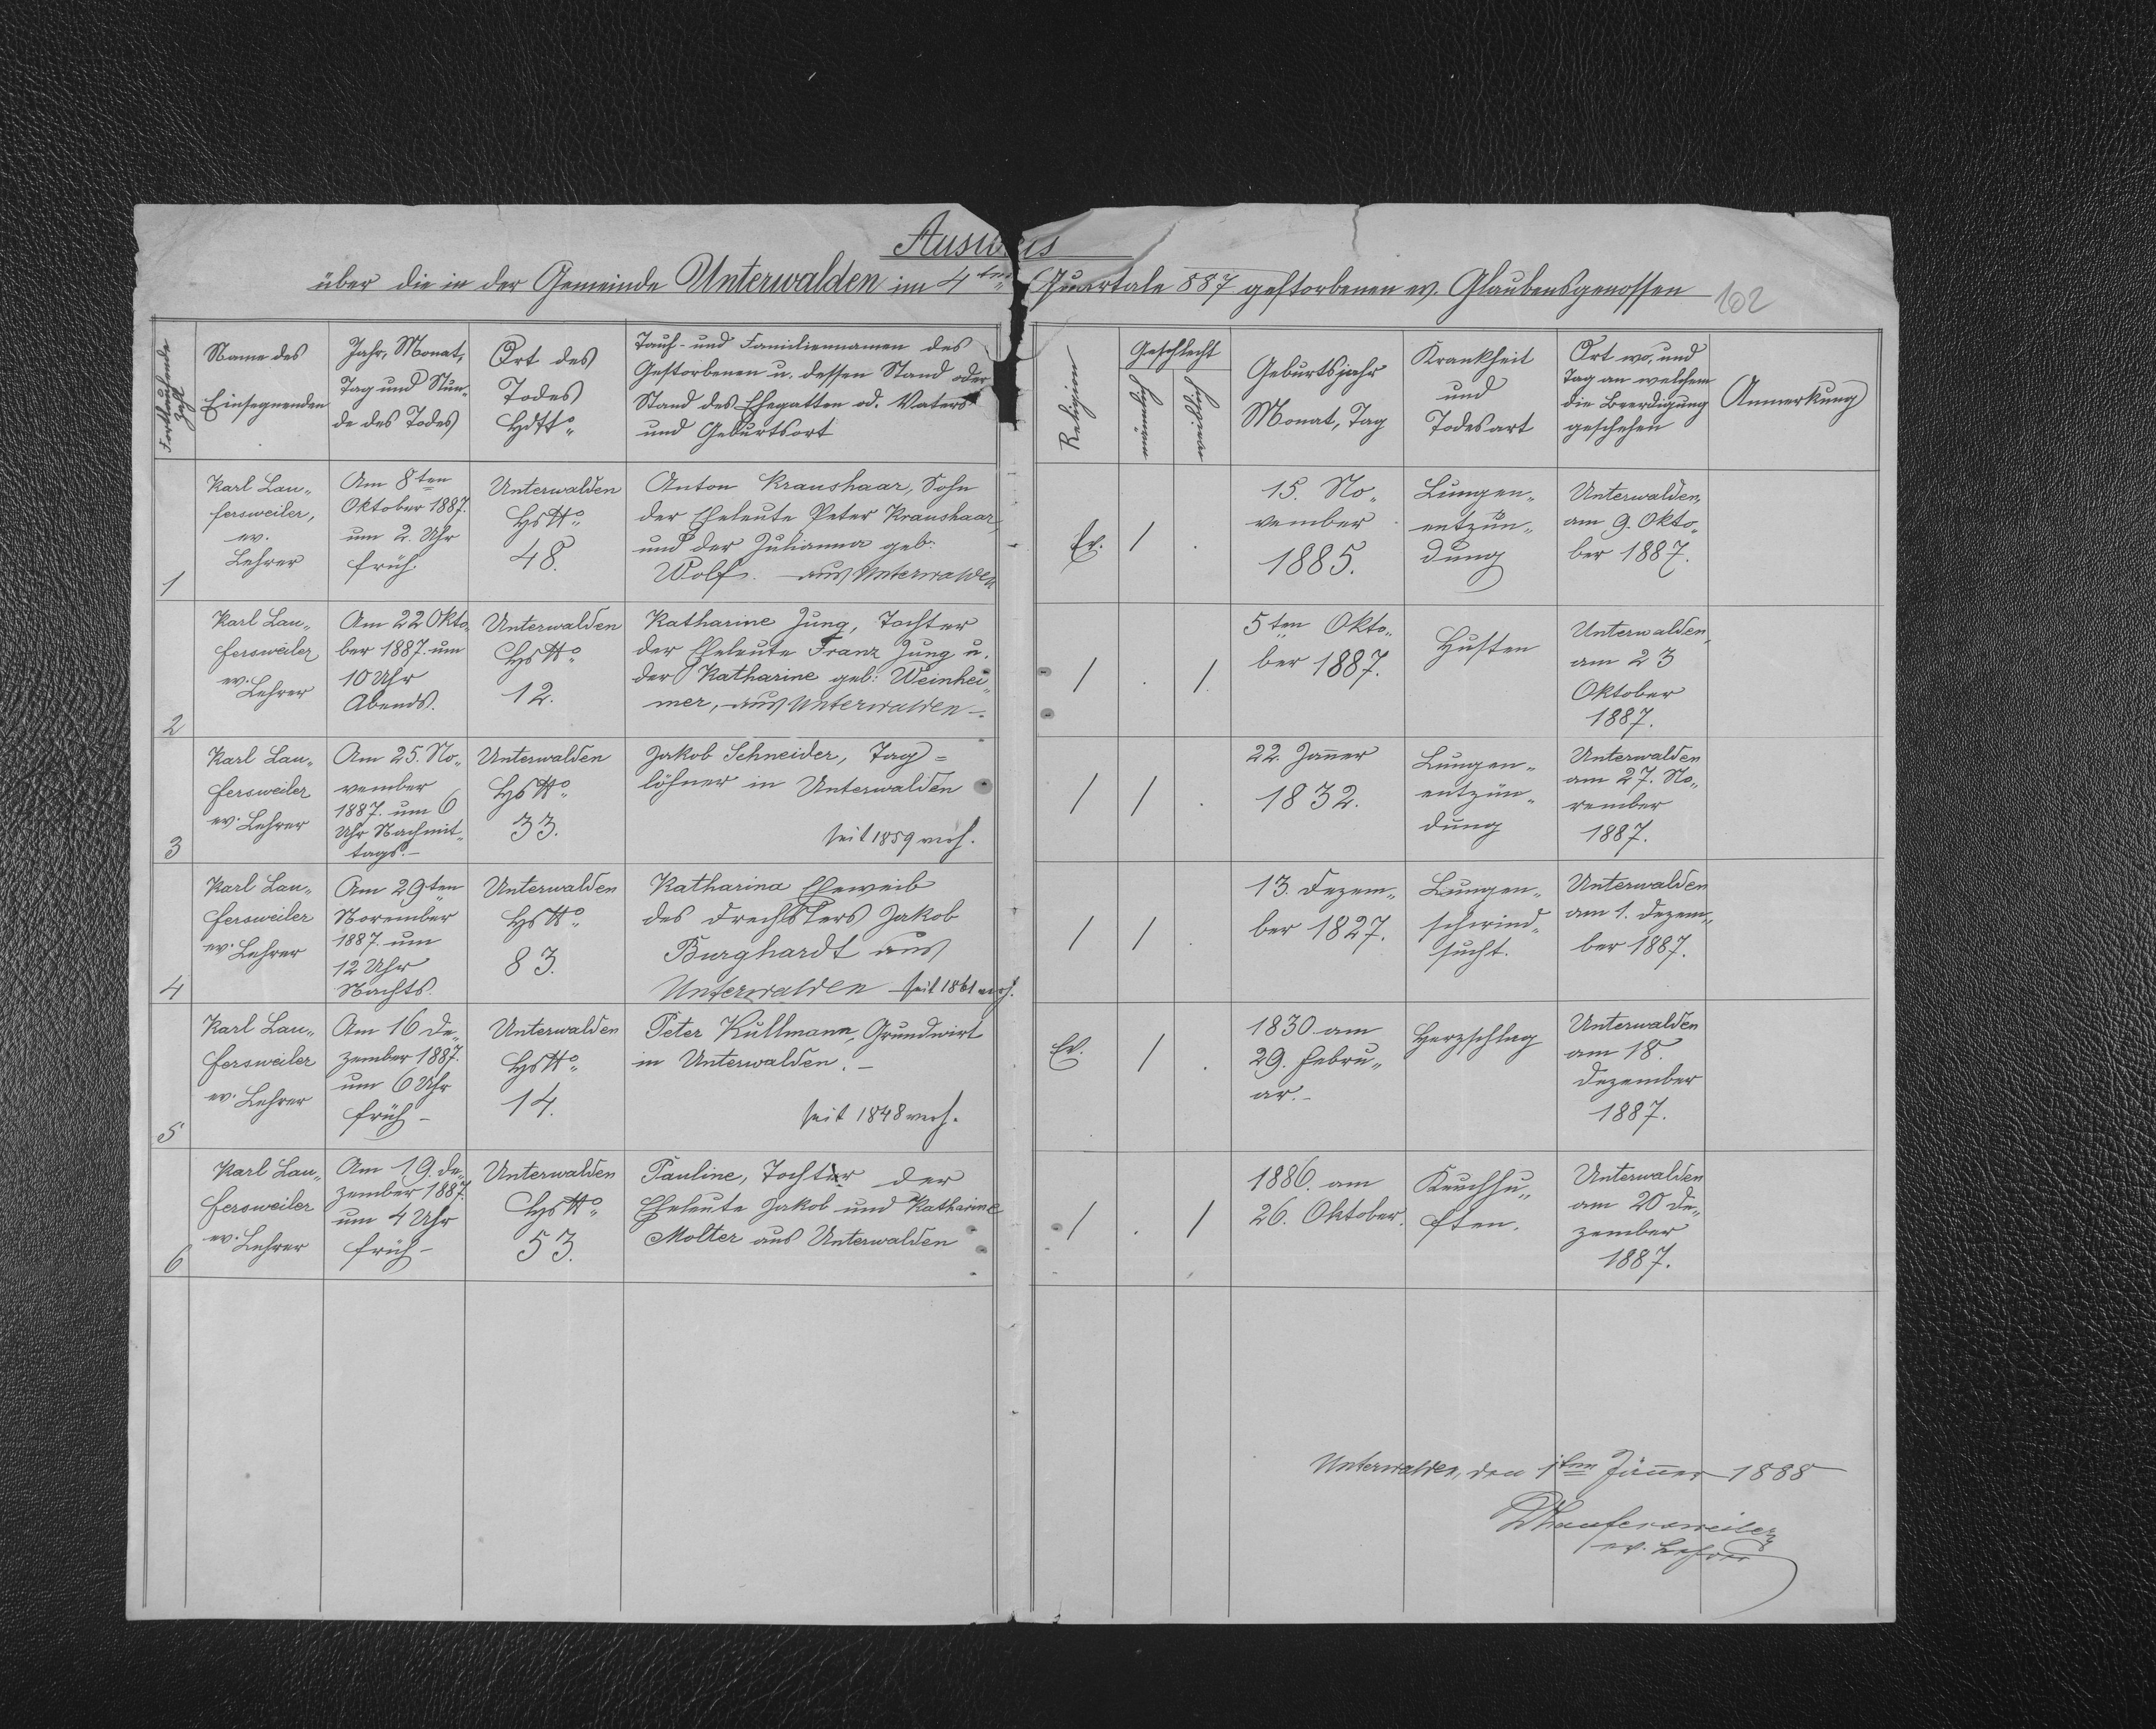 Ausweis
über die in der Gemeinde Unterwalden im 4ten Quartale 887 gestorbenen ev. Glaubensgenossen
102
Fortlaufende
Zahl
Name des
Einsegnenden
Jahr, Monat,
Tag und Stun„
de des Todes
Ort des
Todes
HdNo„
Tauf- und Familiennamen des
Gestorbenen u. dessen Stand oder
Stand des Ehegatten od. Vaters
und Geburtsort
Religion
Geschlecht
Geburtsjahr
Monat, Tag
Krankheit
und
Todesart
Ort wo, und
Tag an welchem
die Beerdigung
geschehen
Anmerkung
1
Karl Lau„
fersweiler,
ev.
Lehrer
Am 8ten
Oktober 1887.
um 2. Uhr
früh.
Unterwalden
HsNo„
48.
Anton Kraushaar, Sohn
der Eheleute Peter Kraushaar,
und der Julianna geb:
Wolf. aus Unterwalden
Ev.
/
.
15. No„
vember
1885.
Lungen„
entzün„
dung
Unterwalden,
am 9. Okto„
ber 1887.
2
Karl Lau„
fersweiler
ev. Lehrer
Am 22 Okto„
ber 1887. um
10 Uhr
Abends.
Unterwalden
HsNo„
12.
Katharine Jung, Tochter
der Eheleute Franz Jung u.
der Katharine geb: Weinhei„
mer, aus Unterwalden –.
/
.
/.
5ten Okto„
ber 1887.
Husten
Unterwalden,
am 23
Oktober
1887.
3
Karl Lau„
fersweiler
ev. Lehrer
Am 25. No„
vember
1887. um 6
Uhr Nachmit„
tags.–
Unterwalden
HsNo„
33.
Jakob Schneider, Tag=
löhner in Unterwalden
seit 1859 verh.
/
/
.
22. Janner
1832.
Lungen„
entzün„
dung
Unterwalden
am 27. No„
vember
1887.
4
Karl Lau„
fersweiler
ev. Lehrer
Am 29ten
November
1887. um
12 Uhr
Nachts.
Unterwalden
HsNo„
83.
Katharina Eheweib
des Drechslers Jakob
Burghardt aus
Unterwalden seit 1861 verh.
/
/
.
13. Dezem„
ber 1827.
Lungen„
schwind„
sucht.
Unterwalden
am 1. Dezem„
ber 1887.
5
Karl Lau„
fersweiler
ev. Lehrer
Am 16 De„
zember 1887.
um 6 Uhr
früh –
Unterwalden
HsNo„
14.
Peter Kullmann, Grundwirt
in Unterwalden. –
seit 1848 verh.
Ev.
/
.
1830 am
29. Febru„
ar.–
Herzschlag
Unterwalden
am 18.
Dezember
1887.
6
Karl Lau„
fersweiler
ev. Lehrer
Am 19. De„
zember 1887.
um 4 Uhr
früh –
Unterwalden
HsNo„
53.
Pauline, Tochter der
Eheleute Jakob und Katharine
Molter aus Unterwalden
/
.
/
1886. am
26. Oktober.
Keuchhu„
sten.
Unterwalden
am 20 De„
zember
1887.
Unterwalden, den 1ten Jänner 1888
Lhaufersweiler
ev. Lehrer